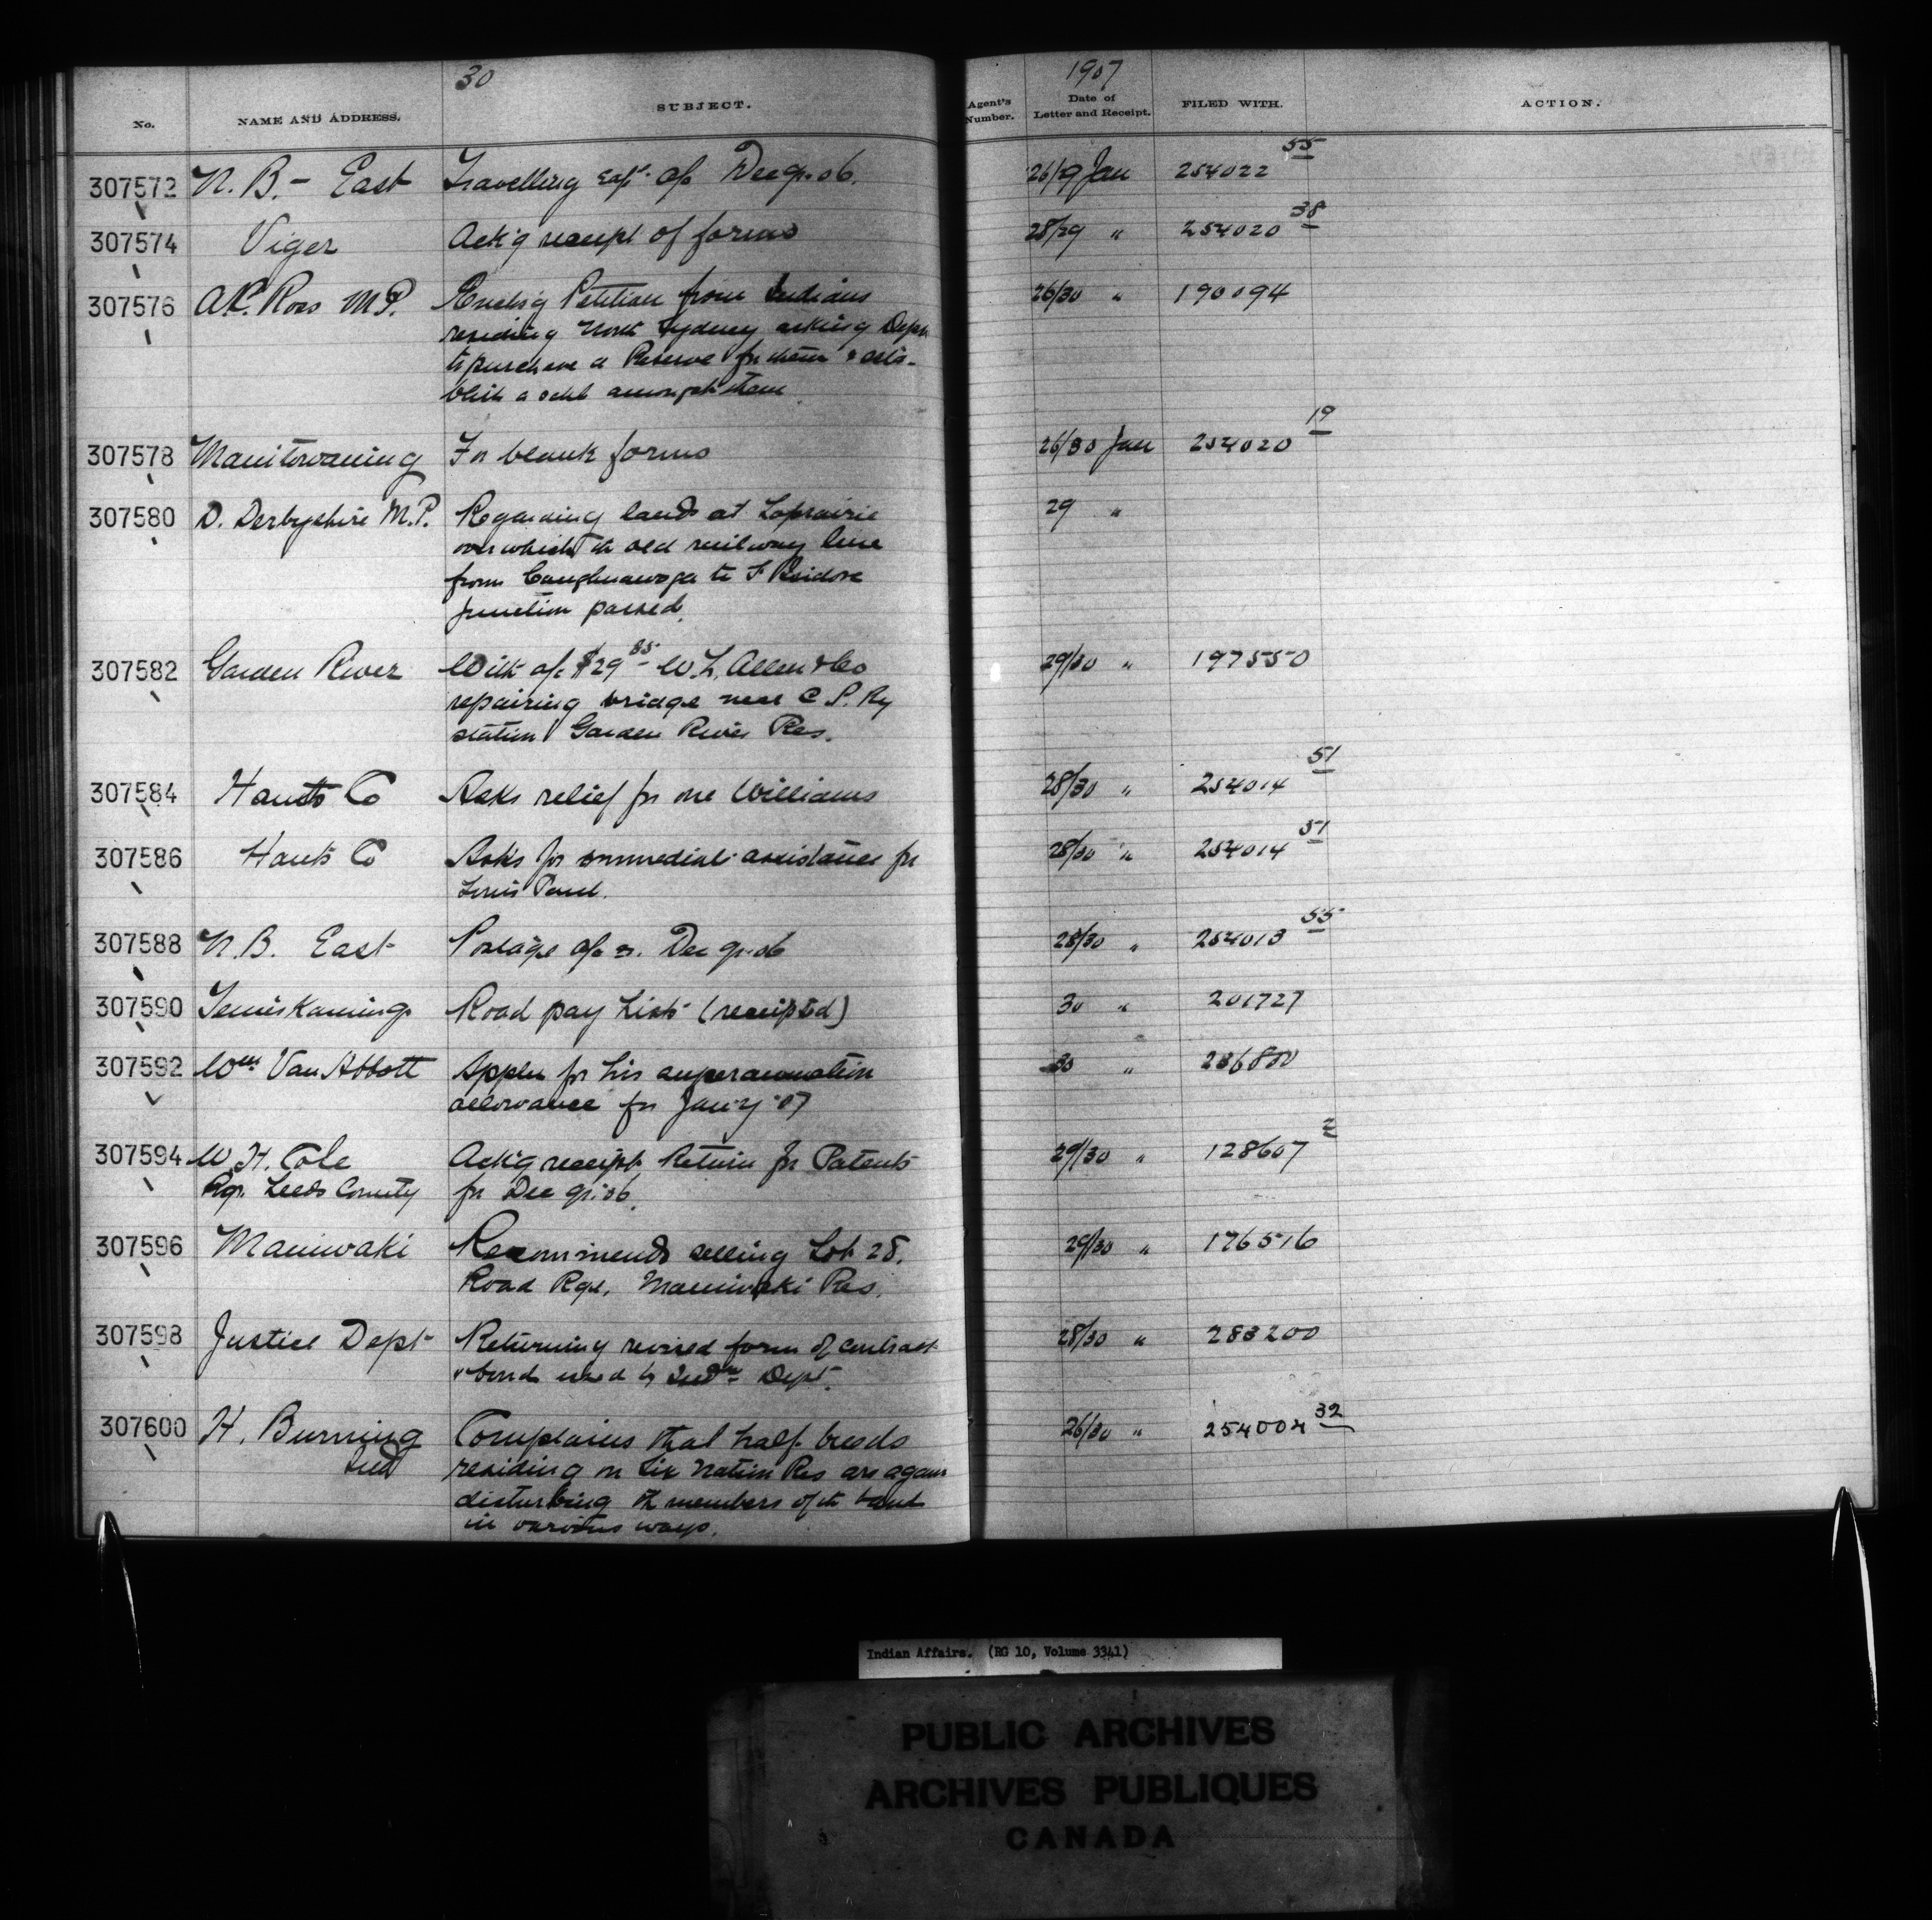 30
1907
No.
NAME AND ADDRESS.
SUBJECT.
Agent's Number.
Date of Letter and Receipt.
FILED WITH.
ACTION.
307572 N. B. - East Travelling exp. a/c Dec qr. 06. 26/29 Jan 254022 55
307574 Viger Ack'g receipt of forms 28/29 " 254020 38
307576 A.C. Ross M.P. Enclos'g Petition from Indians 26/30 " 190094
residing North Sydney asking Dept
to purchase a Reserve for them & esta-
blish a schl amongst them
307578 Manitowaning For blank forms 26/30 Jan 254020 19
307580 D. Derbyshire M.P. Regarding lands at Laprairie 29 "
over which th old railway line
from Caughnawaga to St Isidore
Junction passed.
307582 Garden River With a/c $29 85 - W. L. Allen & Co 29/30 " 197550
repairing bridge near C. P. Ry
station Garden River Res.
307584 Hants Co Asks relief for one Williams 28/30 " 254014 51
307586 Hants Co Asks for immediate assistance for 28/30 " 254014 51
Louis Paul.
307588 N. B. East Postage a/c Dec qr. 06 28/30 " 254013 55
307590 Temiskaming Road pay Lists (receipted) 30 " 201727
307592 Wm Van Abbott Applies for his superannuation 30 " 236800
allowance for Jan'y '07
307594 W. H. Cole Ack'g receipt Return for Patents 29/30 " 128607 2
Rgr. Leeds County for Dec qr. 06.
307596 Maniwaki Recommends selling Lot 28. 29/30 " 176516
Road Rge. Maniwaki Res.
307598 Justice Dept Returning revised form of contract 28/30 " 283200
& bond used by Indn Dept.
307600 H. Burning Complains that half breeds 26/30 " 254004 32
Ind residing on Six Nation Res are again
disturbing th members of th band
in various ways.
Indian Affairs. (RG 10, Volume 3341)
PUBLIC ARCHIVES
ARCHIVES PUBLIQUES
CANADA